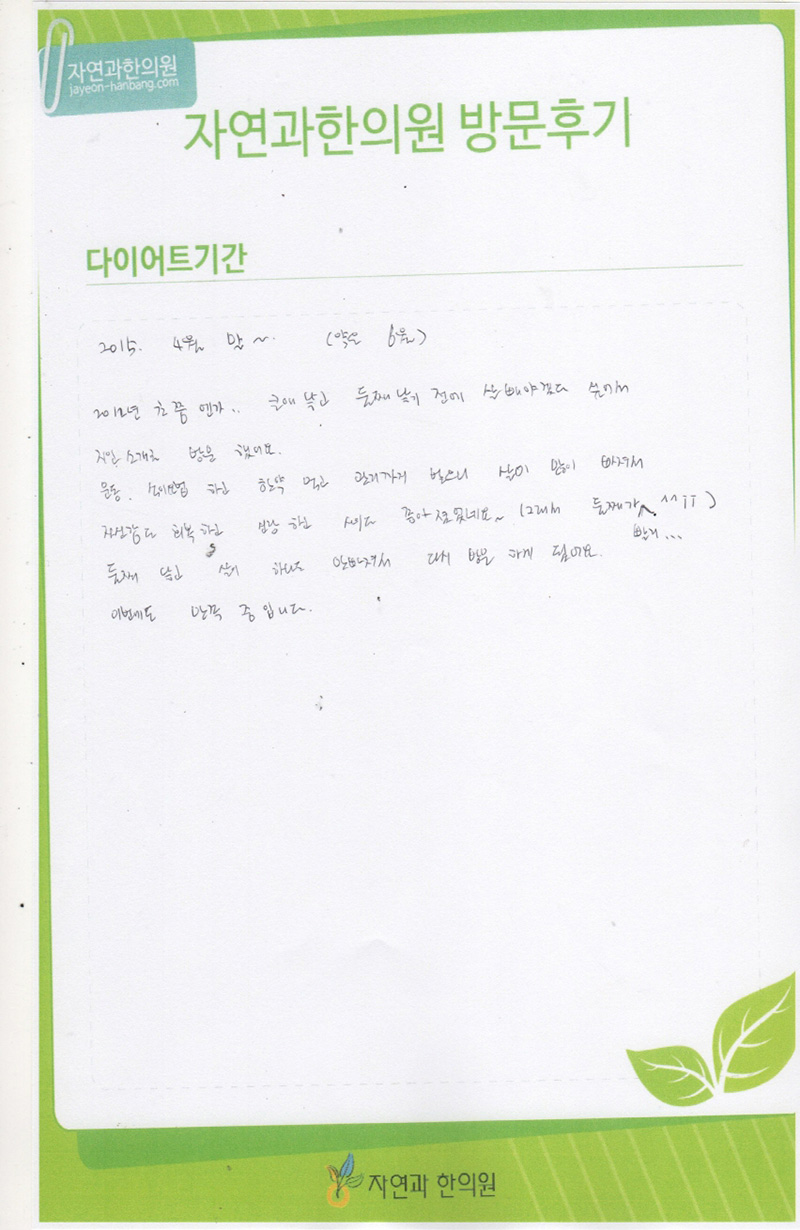 자연과한의원
jayeon-hanbang.com
자연과한의원 방문후기
다이어트기간
2015. 4월 말~. (약은 6월)
2012년 초쯤 엔가.. 큰애 낳고 둘째 낳기 전에 살 빼야겠다 싶어서
지인 소개로 방문 했어요.
운동. 식이요법 하고 한약 먹고 관리까지 받으니 살이 많이 빠져서
자신감도 회복하고 건강 하고 시너지 좋아졌었네요~ (그래서 둘째가 빨리... ^^ㅠ)
둘째 낳고 살이 하나도 안빠져서 다시 방문 하게 됐어요.
이번에도 만족 중 입니다.
자연과 한의원